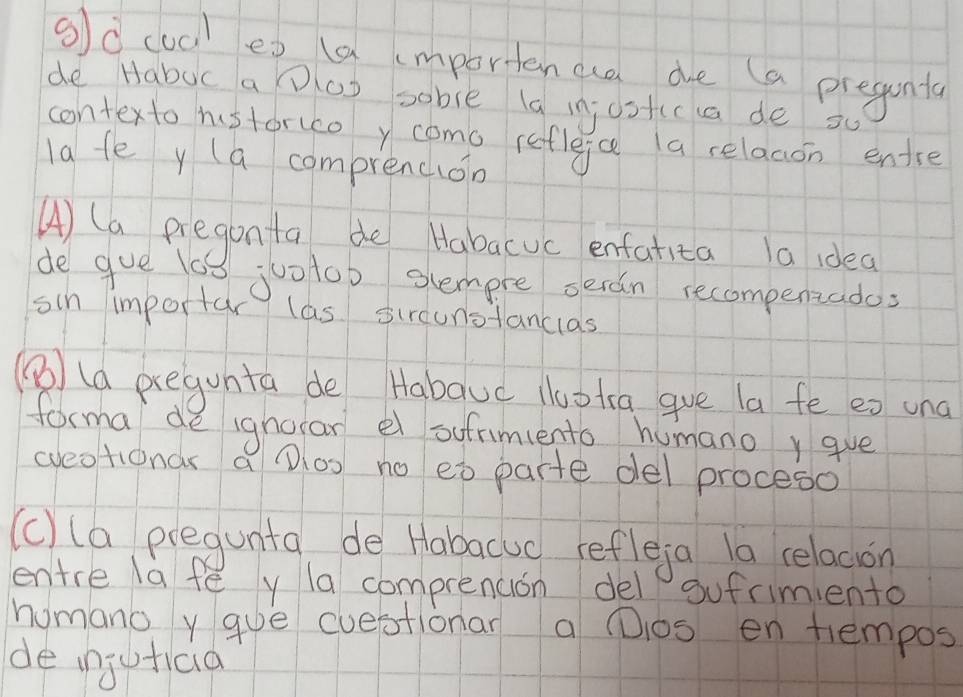 8) ¿ cual es la importencia de la pregunta
de Habuc a Dios sobre la injusticia de su
contexto historico y como refleja la relación entre
la fe y la comprención
(A) La pregunta de Habacuc enfatiza la idea
de que los justos siempre serán recompenzados
sin importar las sircunstancias
(B) La pregunta de Habauc ilustra que la fe es una
forma de ignorar el sufrimiento humano y que
cuestionar a Dios no es parte del proceso
(C) La pregunta de Habacuc refleja la relación
entre la fe y la comprención del sufrimiento
humano y que cuestionar a Dios en tiempos
de injuticia